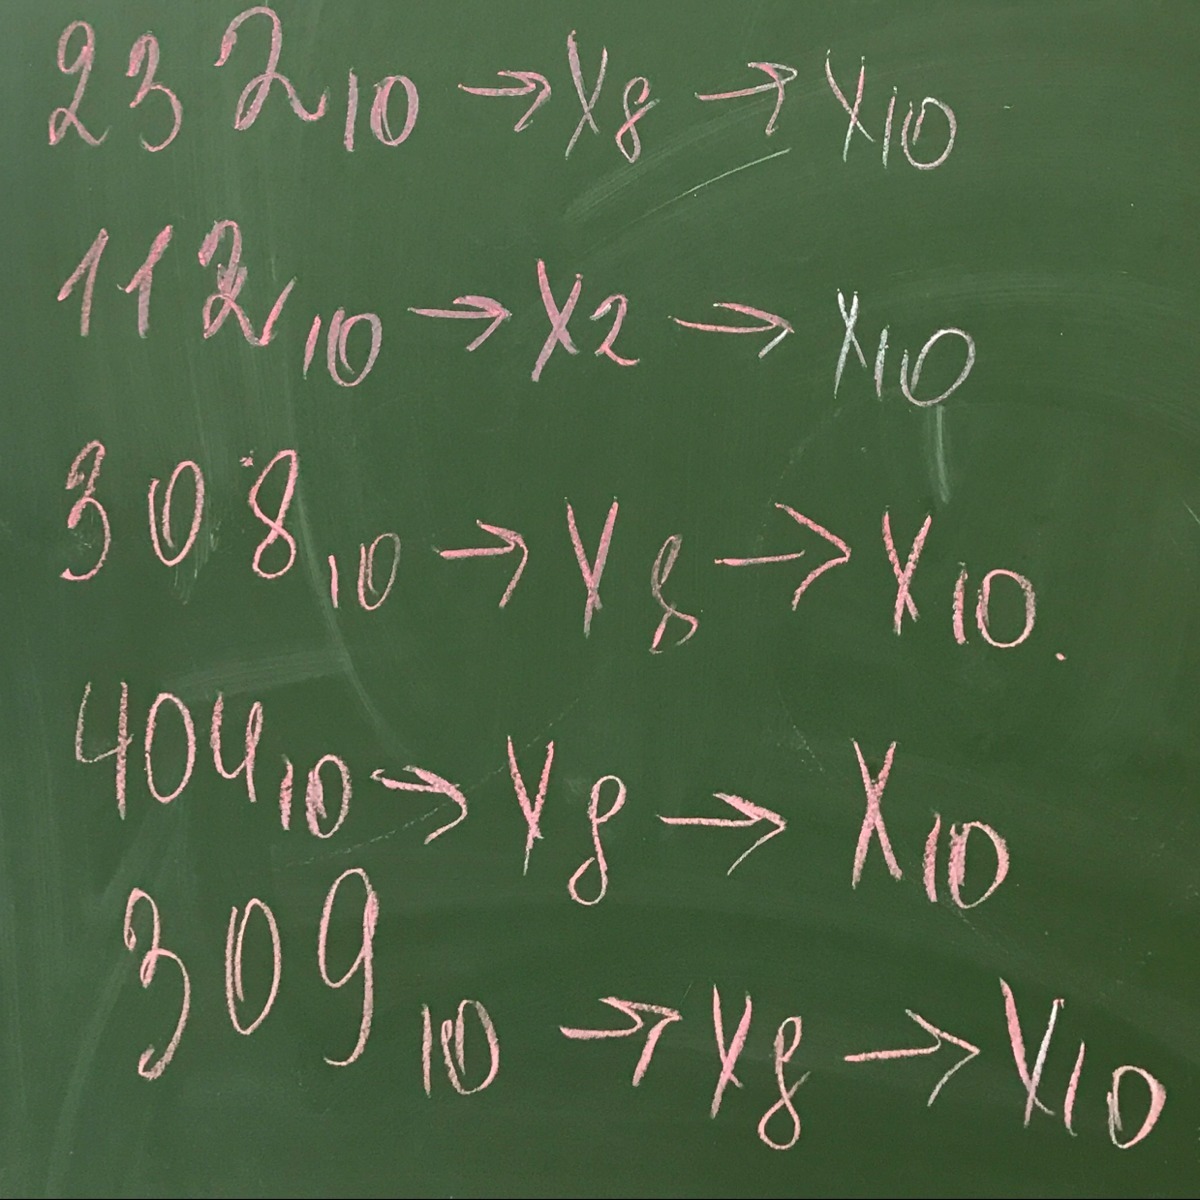 232₁₀ → X₈ → X₁₀
112₁₀ → X₂ → X₁₀
308₁₀ → X₈ → X₁₀.
404₁₀ → X₈ → X₁₀
309₁₀ → X₈ → X₁₀